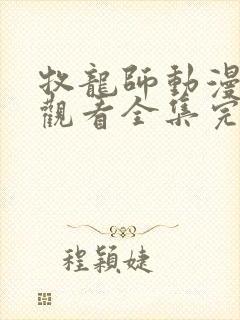 牧龍師動漫
觀看全集完
程穎婕